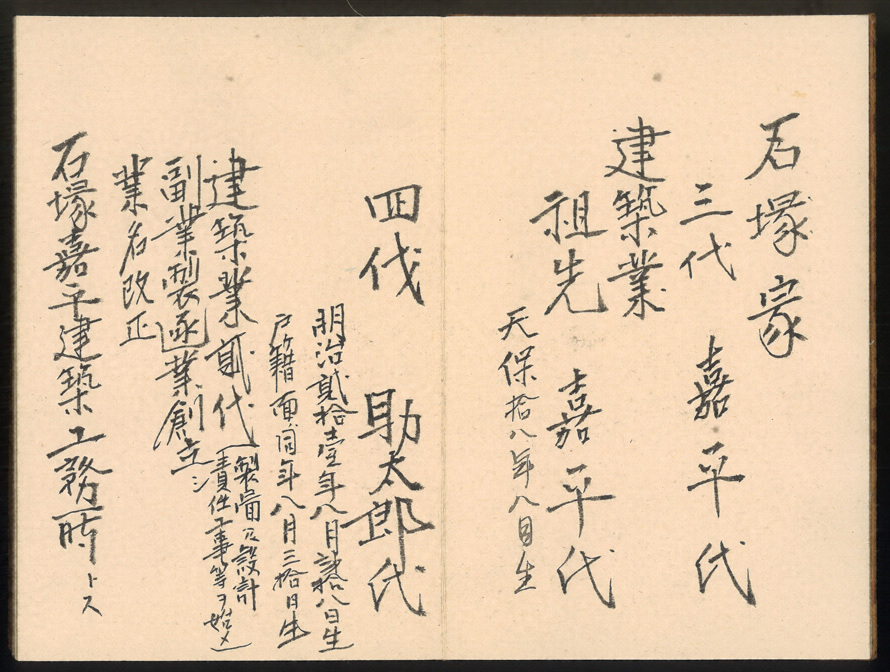 石塚家
三代 嘉平代
建築業
祖先 嘉平代
天保拾八年八月生
四代 助太郎代
明治貳拾壹年八月貳拾八日生
戸籍面同年八月三拾日生
建築業貳代
（製圖及設計
責任工事等ヲ始メ）
副業製函業創立シ
業名改正
石塚嘉平建築工務時トス